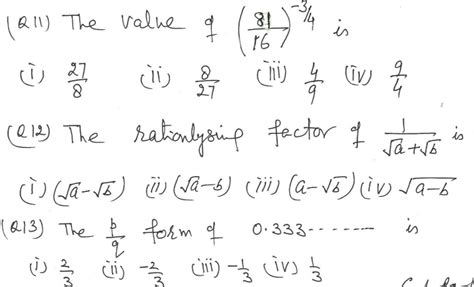 (Q11) The value of (81/16)^-3/4 is
(i) 27/8 (ii) 8/27 (iii) 4/9 (iv) 9/4
(Q12) The rationlysing factor of 1/√a+√b is
(i) (√a-√b) (ii) (√a-b) (iii) (a-√b) (iv) √a-b
(Q13) The p/q form of 0.333------- is
(i) 2/3 (ii) -2/3 (iii) -1/3 (iv) 1/3